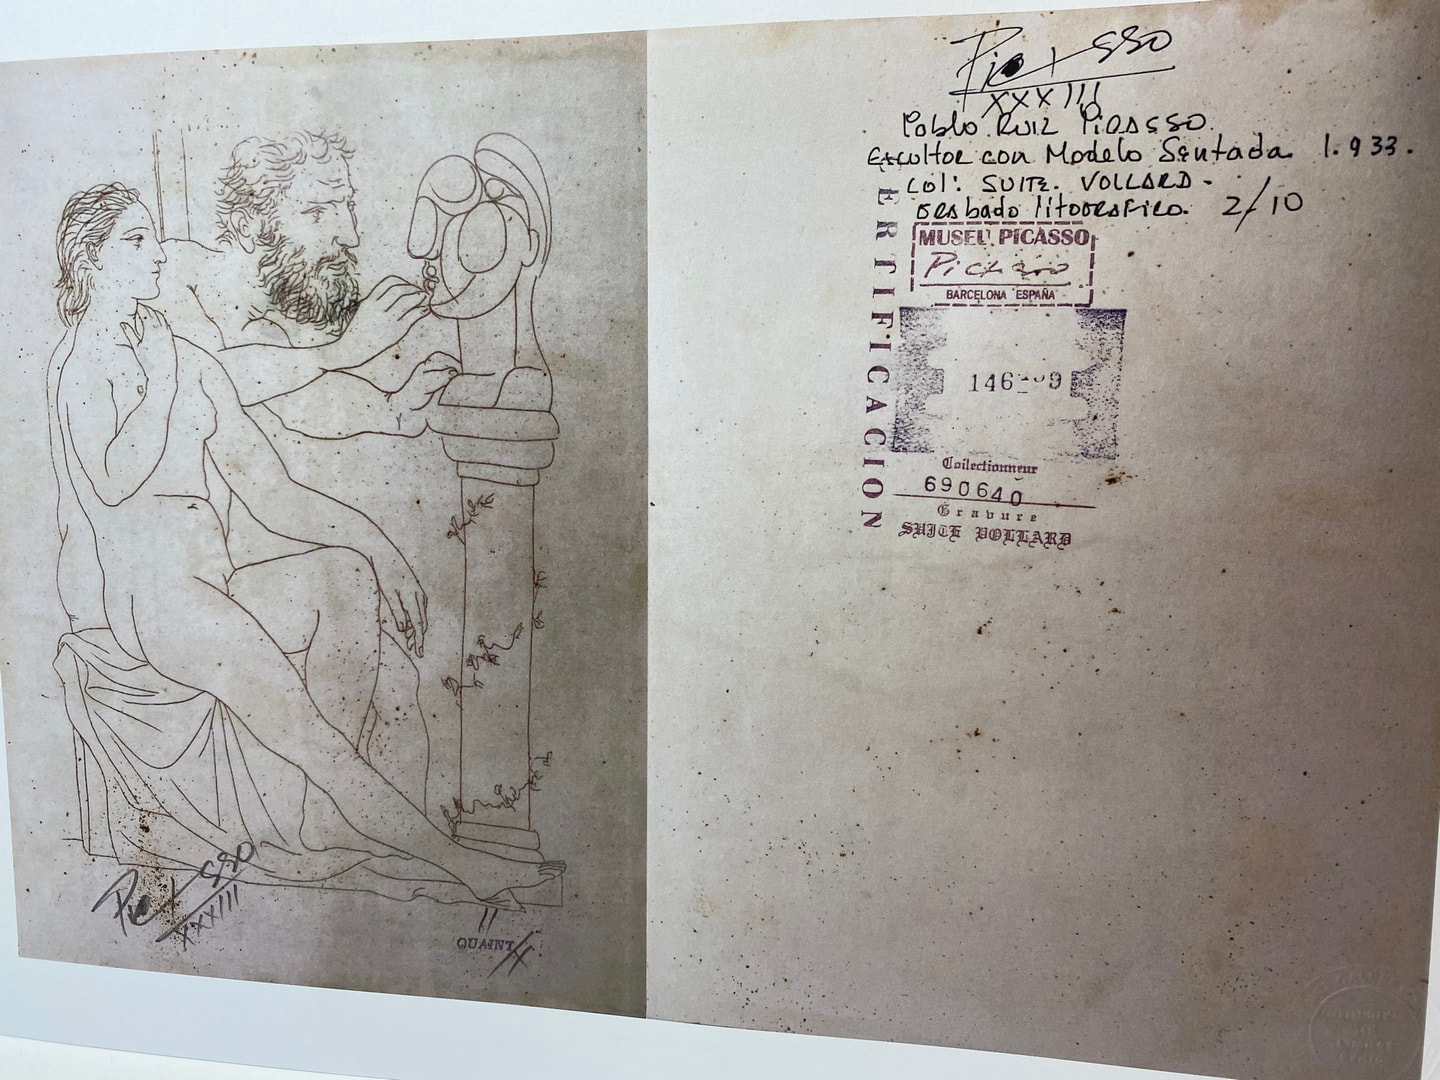 Picasso
XXXIII
QUAINT
Picasso
XXXIII
Pablo Ruiz Picasso.
Escultor con Modelo Sentada 1.933.
Col: SUITE. VOLLARD-
Grabado litografico. 2/10
CERTIFICACION
MUSEU PICASSO
Picasso
BARCELONA ESPAÑA
Collectionneur
690640
Gravure
SUITE VOLLARD